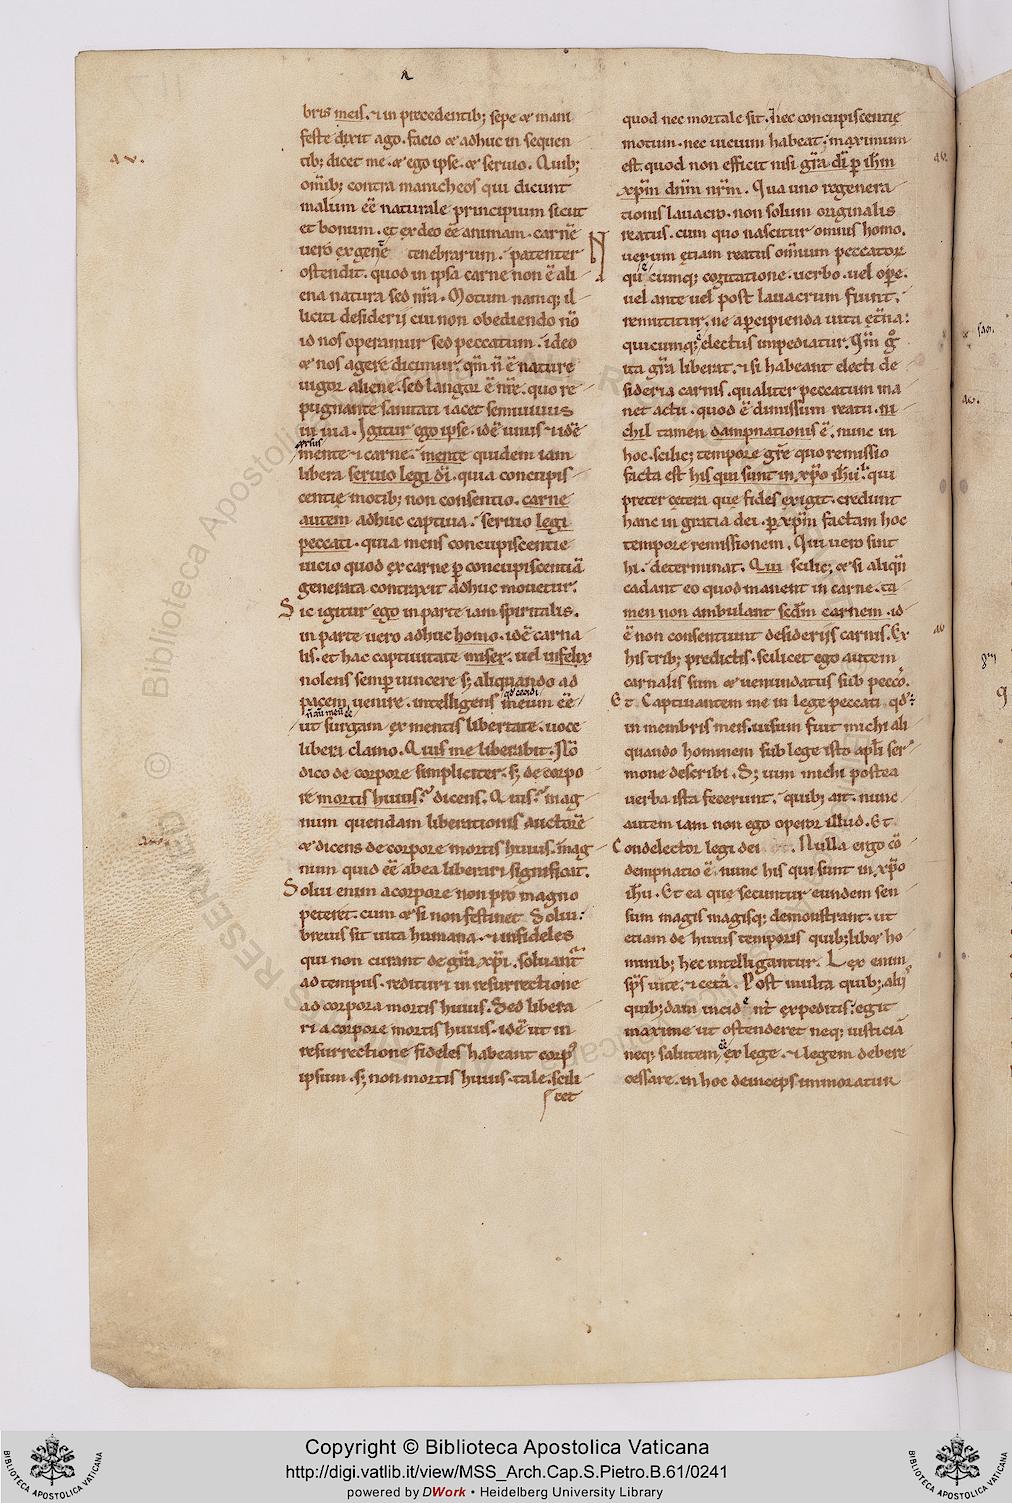 a
bris meis. ⁊ in precedentib; sepe & mani
feste dixit ago. facio & adhuc in sequen
tib; dicet me. & ego ipse. & seruio. Quib;
omib; contra manicheos qui dicunt
malum eē naturale principium sicut
et bonum. et ex deo eē animam. carnē
uero ex gente tenebrarum. patenter
ostendit. quod in ipsa carne non ē ali
ena natura sed nra. Motum namq; il
liciti desiderij cui non obediendo nō
id nos operamur sed peccatum. ideo
& nos agere dicimur. qm n ē nature
uigor aliene. sed langor ē nre. quo re
pugnante sanitati iacet semiuiuus
in uia. Igitur ego ipse. idē unus ⁊ idē
mente ⁊ carne. mente quidem iam
libera seruio legi di. quia concupis
centie motib; non consentio. carne
autem adhuc captiua. seruio legi
peccati. quia mens concupiscentie
uicio quod ex carne p concupiscentiā
generata contraxit adhuc mouetur.
Sic igitur ego in parte iam spiritalis.
in parte uero adhuc homo. idē carna
lis. et hac captiuitate miser. uel infelix
nolens semp uincere s; aliquando ad
pacem uenire. intelligens meum eē
ut surgam ex mentis libertate. uoce
liberi clamo. Quis me liberabit. Nō
dico de corpore simpliciter. s; de corpo
re mortis huius. dicens. Quis. mag
num quendam liberationis auctorē
& dicens de corpore mortis huius. mag
num quid eē ab ea liberari significat.
Solui enim a corpore non pro magno
peteret. cum & si non festinet solui:
breuis sit uita humana. ⁊ infideles
qui non curant de gra xpi. soluantur
ad tempus. redituri in resurrectione
ad corpora mortis huius. Sed libera
ri a corpore mortis huius. idē ut in
resurrectione fideles habeant corp9
ipsum. s; non mortis huius. tale. scili
cet
quod nec mortale sit. Nec concupiscentię
motum. nec uicium habeat. maximum
est. quod non efficit nisi gra di p ihm
xpm dnm nrm. Qua uno regenera
tionis lauacro. non solum originalis
reatus. cum quo nascitur omnis homo.
uerum etiam reatus omium peccator
quecumq; cogitatione. uerbo. uel ope.
uel ante uel post lauacrum fiunt.
remittitur. ne apcipienda uita etna:
quicumq; electus impediatur. Qm g
ita gra liberat. ⁊ si habeant electi de
sideria carnis. qualiter peccatum ma
net actu. quod ē dimissum reatu. ni
chil tamen dampnationis ē. nunc in
hoc. scilic; tempore gre quo remissio
facta est his qui sunt in xpo ihu. qui
preter cetera que fides exigit. credunt
hanc in gratia dei. p xpm factam hoc
tempore remissionem. Qui uero sint
hi. determinat. Qui scilic; & si aliqn
cadant eo quod manent in carne. ta
men non ambulant scdm carnem. id
ē non consentiunt desiderijs carnis. Ex
his trib; predictis. scilicet ego autem
carnalis sum & uenundatus sub pecco.
Et Captiuantem me in lege peccati qd:
in membris meis. uisum fuit michi ali
quando hominem sub lege isto apli ser
mone describi. S; uim michi postea
uerba ista fecerunt. quib; ait. nunc
autem iam non ego operor illud. Et
Condelector legi dei Nulla ergo cō
dempnatio ē. nunc his qui sunt in xpo
ihu. Et ea que secuntur eundem sen
sum magis magisq; demonstrant. ut
etiam de huius temporis quib;lib& ho
minib; hec intelligantur. Lex enim
sps uite. ⁊ cetera. Post multa quib;. alij
quib;dam incidenter expeditis: egit
maxime ut ostenderet neq; iusticiā
neq; salutem eē ex lege. ⁊ legem debere
cessare. in hoc deinceps immoratur
© Biblioteca Apostolica Vaticana
Copyright © Biblioteca Apostolica Vaticana
http://digi.vatlib.it/view/MSS_Arch.Cap.S.Pietro.B.61/0241
powered by DWork • Heidelberg University Library
BIBLIOTECA APOSTOLICA VATICANA
BIBLIOTECA APOSTOLICA VATICANA